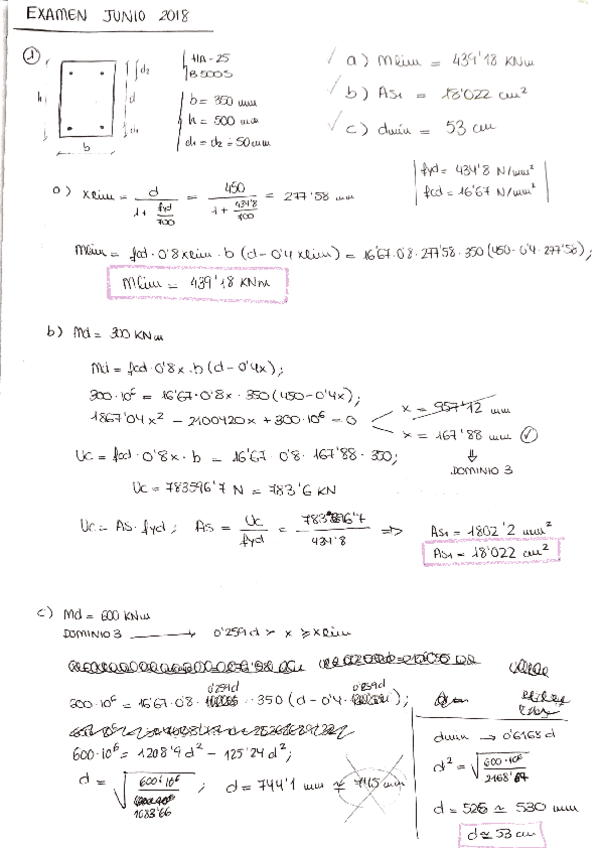 EXAMEN JUNIO 2018
①
HA-25
B500S
b = 350 mm
h = 500 mm
d1 = d2 = 50mm
d2
h
d
d1
b
√ a) Mlim = 439'18 KNm
√ b) As1 = 18'022 cm²
√ c) dmin = 53 cm
fyd = 434'8 N/mm²
fcd = 16'67 N/mm²
a) xlim = d / (1 + fyd/700) = 450 / (1 + 434'8/700) = 277'58 mm
Mlim = fcd · 0'8xlim · b (d - 0'4 xlim) = 16'67·0'8·277'58·350 (450 - 0'4·277'58);
Mlim = 439'18 KNm
b) Md = 300 KNm
Md = fcd · 0'8x · b (d - 0'4x);
300·10⁶ = 16'67·0'8x · 350 (450 - 0'4x);
1867'04x² - 2100420x + 300·10⁶ = 0
x = 957'12 mm
x = 167'88 mm √
⇓
DOMINIO 3
Uc = fcd · 0'8x · b = 16'67·0'8·167'88·350;
Uc = 783596'7 N = 783'6 KN
Uc = As · fyd; As = Uc / fyd = 783596'7 / 434'8 ⇒ As1 = 1802'2 mm²
As1 = 18'022 cm²
c) Md = 600 KNm
DOMINIO 3 → 0'259d > x ≥ xlim
300·10⁶ = 16'67·0'8 · 0'259d · 350 (d - 0'4 · 0'259d);
600·10⁶ = 1208'9 d² - 125'24 d²;
d = √(600·10⁶ / 1083'66) ; d = 744'1 mm ≃ 745 mm
dmin → 0'6168 d
d² = √(600·10⁶ / 2168'67)
d = 526 ≃ 530 mm
d ≃ 53 cm